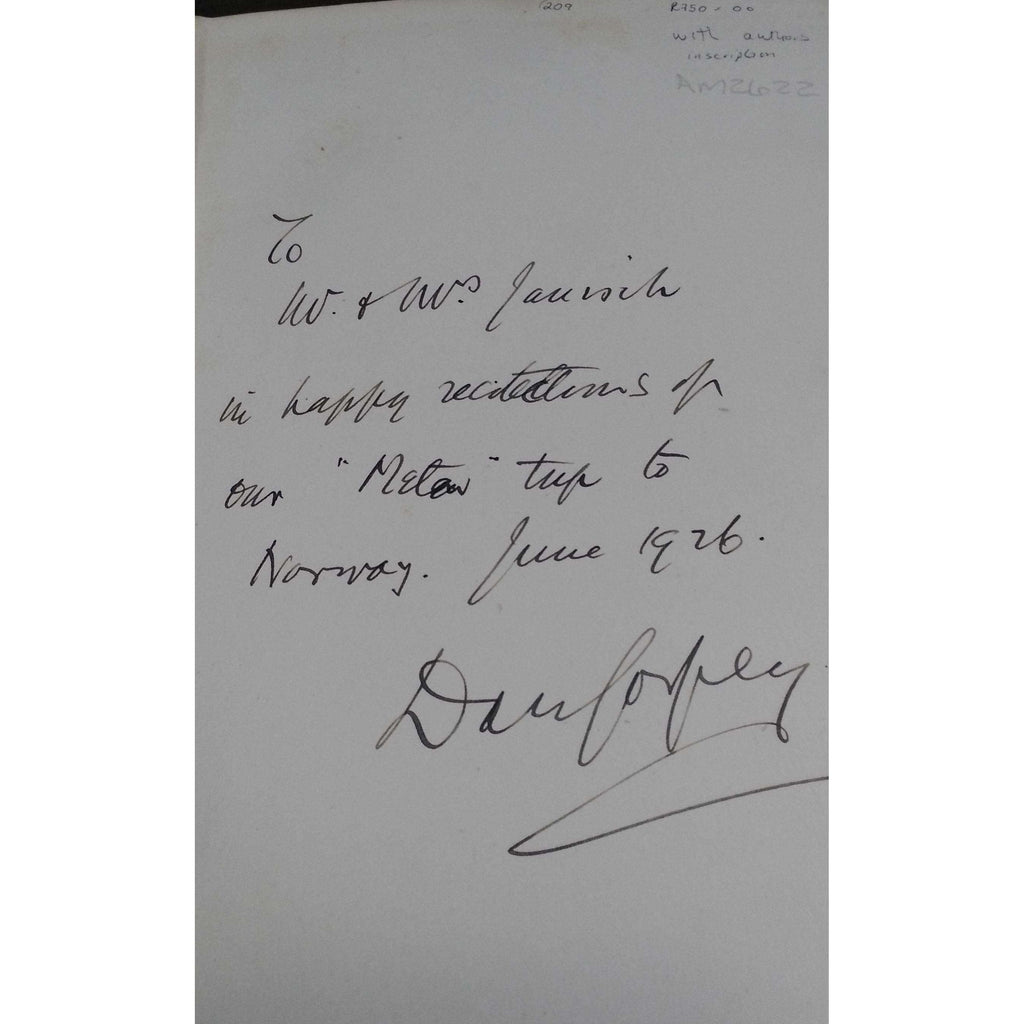 209
R750-00
with authors
inscription
AM2622
To
Mr. & Mrs Janisch
in happy recollections of
our "Meteor" trip to
Norway. June 1926.
Dan